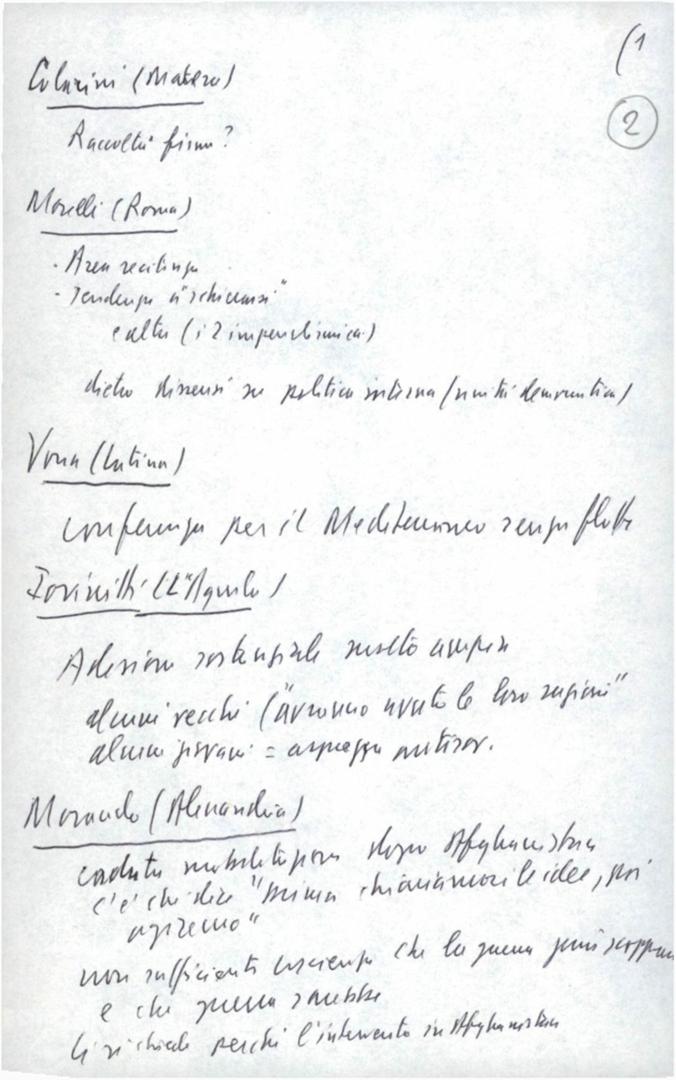 (1
2
Colucini (Matera)
Raccolta firme?
Morelli (Roma)
- Area
- Tendenza a "schierarsi"
e altre (i 2 imperialismi)
dietro dissensi su politica interna (unità democratica)
Vona (Latina)
conferenza per il Mediterraneo senza flotte
Iovinitti (L'Aquila)
Adesione sostanziale molto ampia
alcuni vecchi ("avranno avuto le loro ragioni"
alcuni giovani = asprezza antisov.
Morando (Alessandria)
caduta dopo Afghanistan
c'è chi dice "prima chiariamoci le idee, poi
agiremo"
non sufficiente coscienza che la guerra può scoppiare
e che guerra sarebbe
Si richiede perché l'intervento in Afghanistan